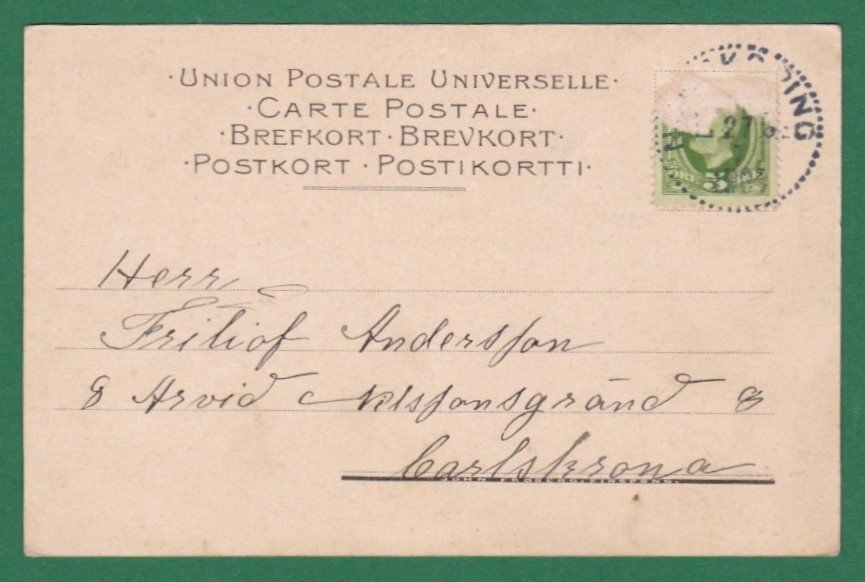 ·UNION POSTALE UNIVERSELLE·
·CARTE POSTALE·
·BREFKORT·BREVKORT·
·POSTKORT·POSTIKORTTI·
KÖPING
27
Herr
Fritiof Andersson
8 Arvid Nilssonsgränd 8
Carlskrona
JOHN FRÖBERG, FINSPONG.